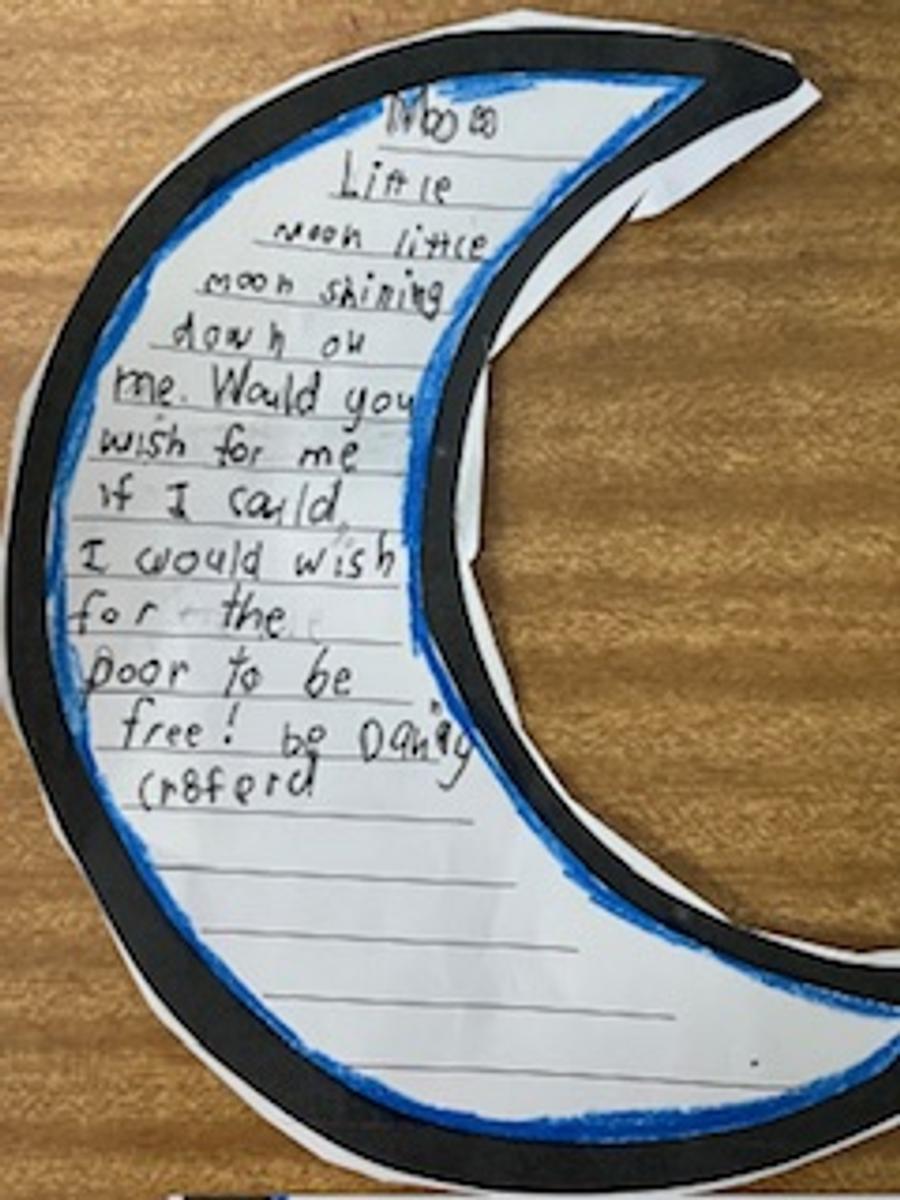 Moon
Little
moon little
moon shining
down on
me. Would you
wish for me
if I could
I would wish
for the
poor to be
free! be Danay
Cr8ferd